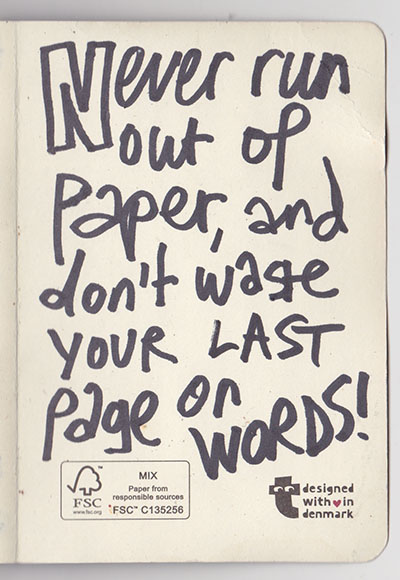 Never run
out of
Paper, and
don't waste
YOUR LAST
page on
WORDS!
FSC
www.fsc.org
MIX
Paper from
responsible sources
FSC™ C135256
designed
with♥in
denmark